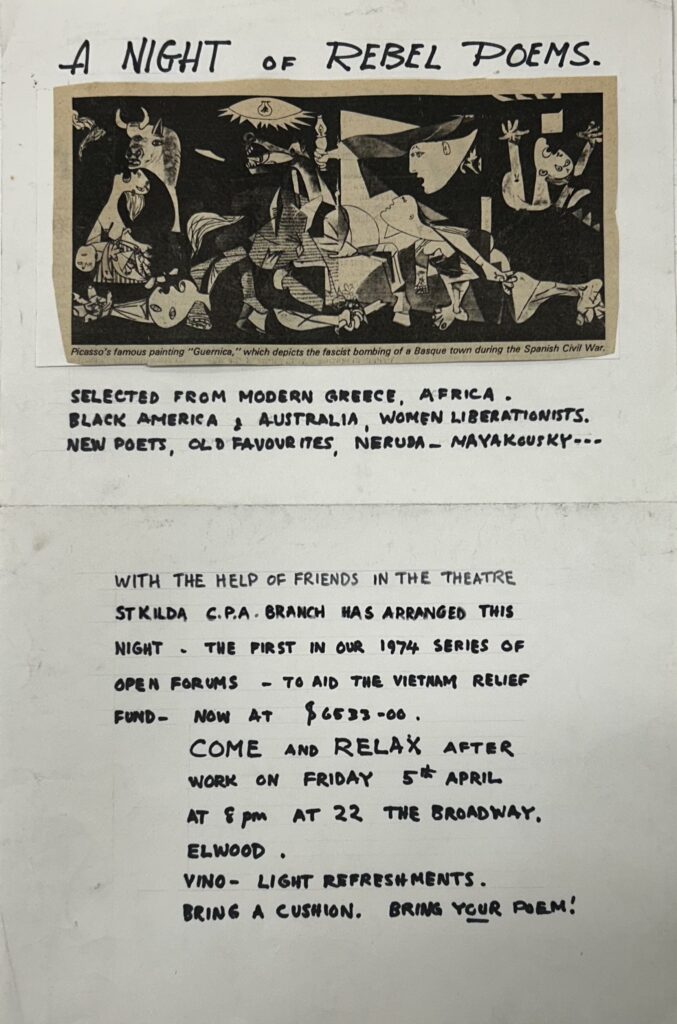 A NIGHT OF REBEL POEMS.
Picasso's famous painting "Guernica," which depicts the fascist bombing of a Basque town during the Spanish Civil War.
SELECTED FROM MODERN GREECE, AFRICA.
BLACK AMERICA & AUSTRALIA, WOMEN LIBERATIONISTS.
NEW POETS, OLD FAVOURITES, NERUDA - MAYAKOUSKY ---
WITH THE HELP OF FRIENDS IN THE THEATRE
ST KILDA C.P.A. BRANCH HAS ARRANGED THIS
NIGHT - THE FIRST IN OUR 1974 SERIES OF
OPEN FORUMS - TO AID THE VIETNAM RELIEF
FUND - NOW AT $6533-00.
COME AND RELAX AFTER
WORK ON FRIDAY 5th APRIL
AT 8 pm AT 22 THE BROADWAY.
ELWOOD.
VINO - LIGHT REFRESHMENTS.
BRING A CUSHION. BRING YOUR POEM!